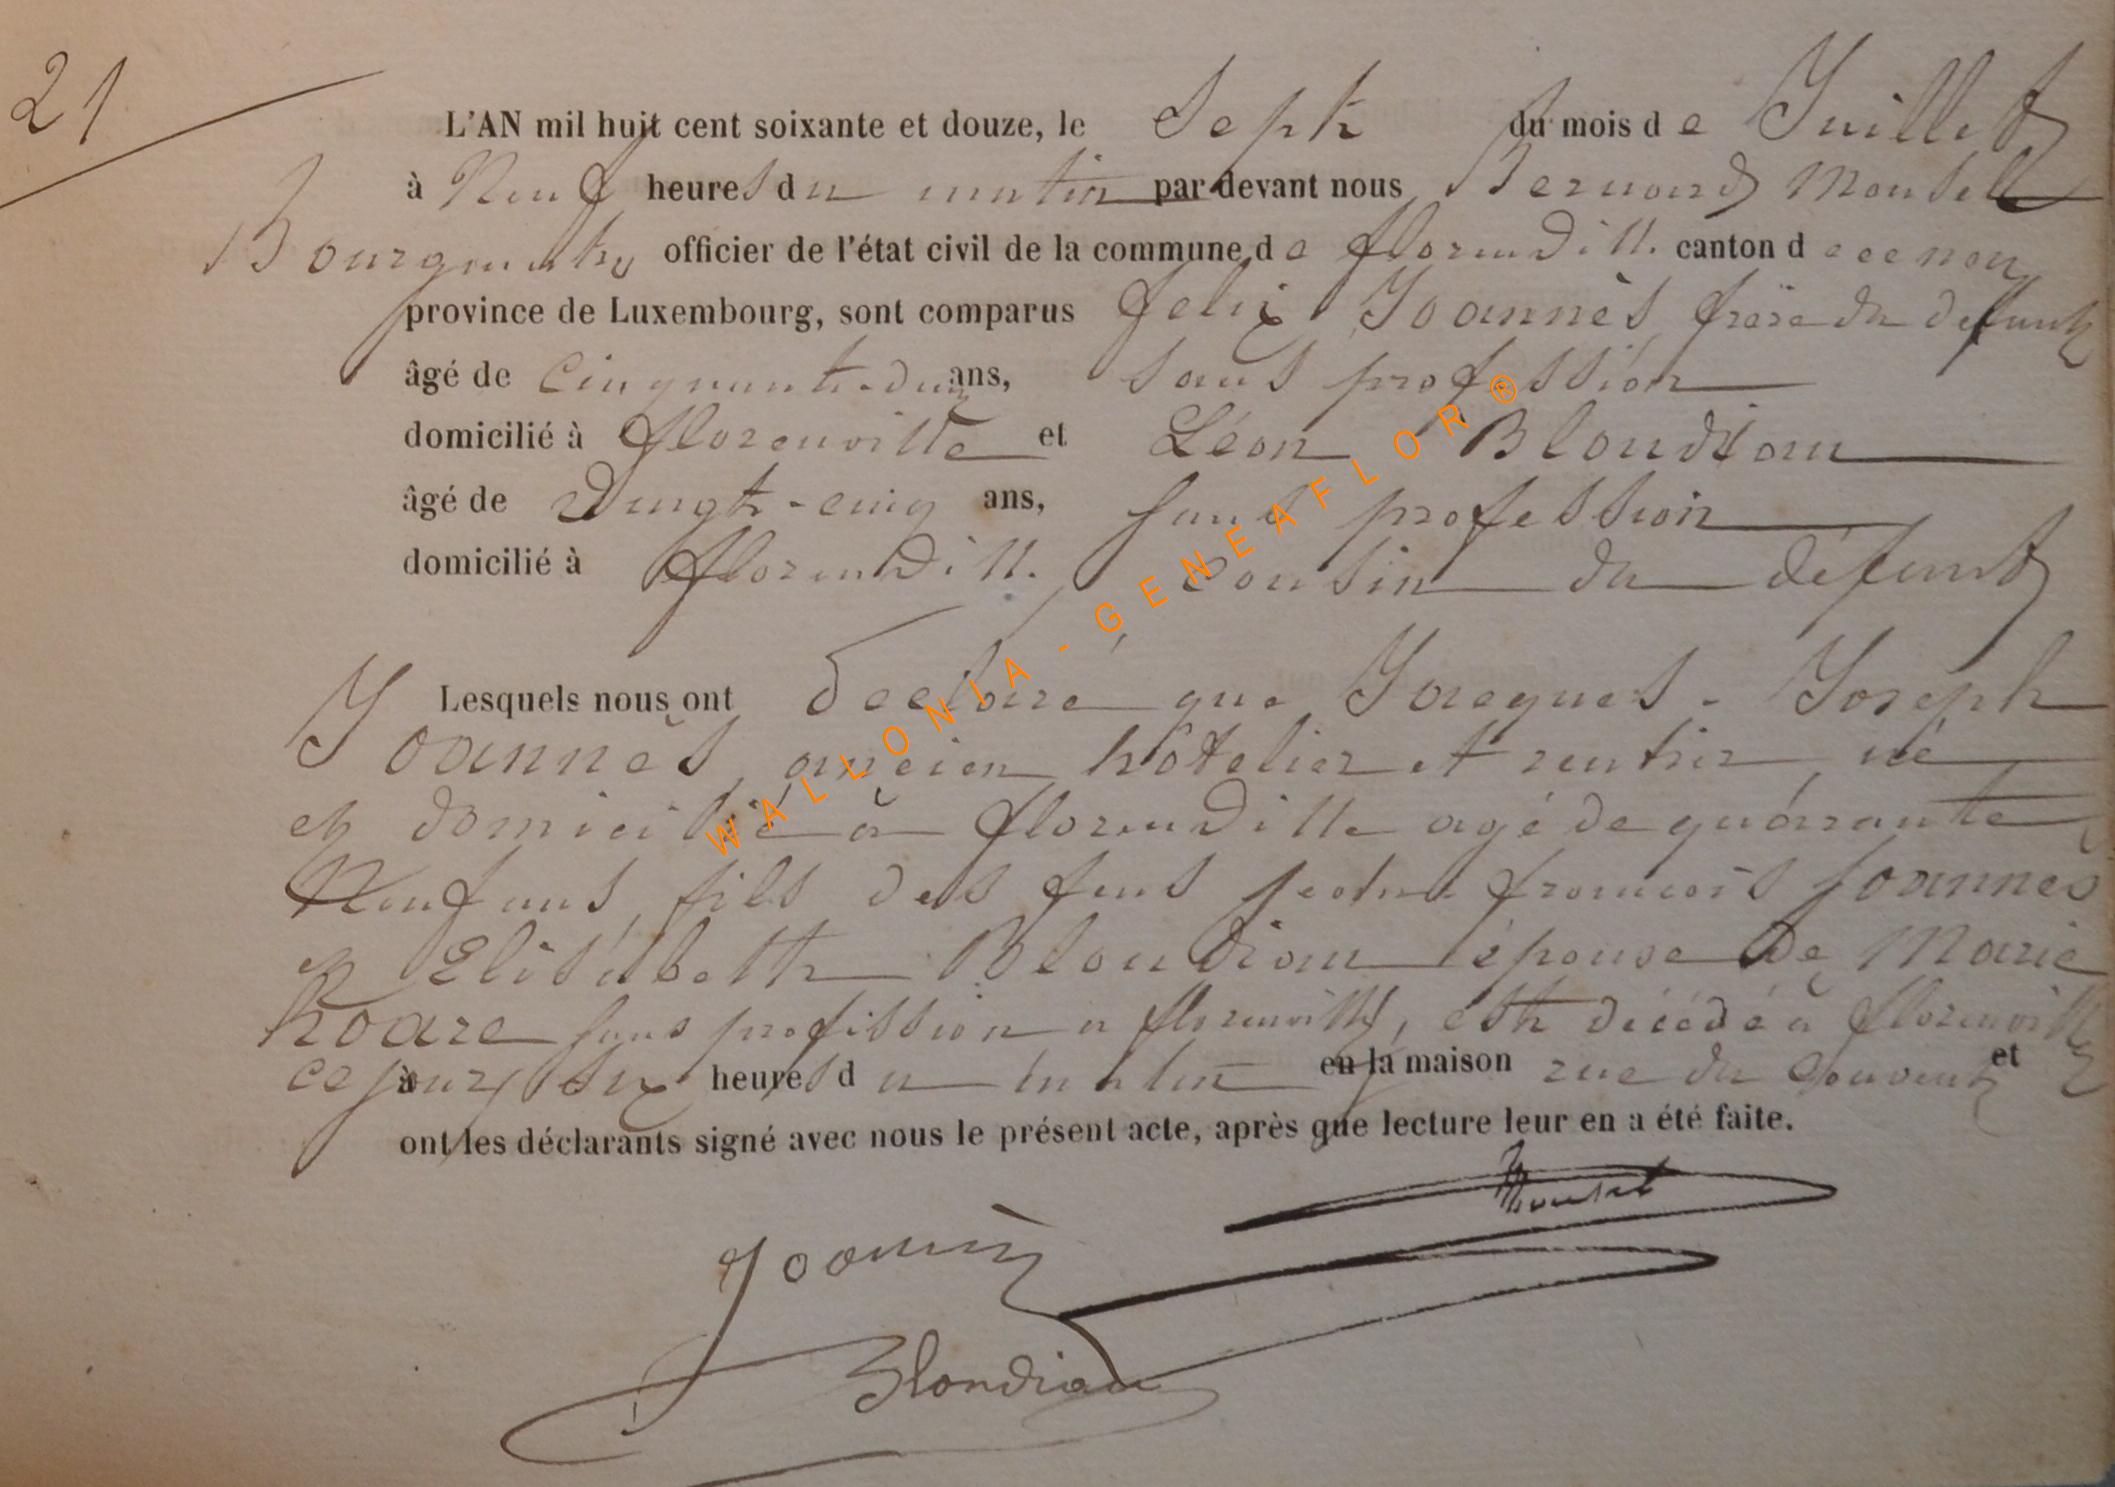 21
L'AN mil huit cent soixante et douze, le Sept du mois de Juillet
à Neuf heures du matin par devant nous Bernard Mouset
Bourgmestre officier de l'état civil de la commune de florenville. canton de ce nom
province de Luxembourg, sont comparus felix Joannès frère du defunt
âgé de cinquante-deux ans, sans profession
domicilié à florenville et Léon Blondiau
âgé de vingt-cinq ans, sans profession
domicilié à florenville. cousin du défunt
Lesquels nous ont declaré que Jacques-Joseph
Joannès, ancien hôtelier et rentier, né
et domicilié à florenville agé de quarante
Neuf ans, fils des feus jean françois joannès
et Elisabeth Blondiau épouse de Marie
hoare sans profission a florenville, est décédé à florenville
ce jour à six heures du matin en la maison rue du Couvent et
ont les déclarants signé avec nous le présent acte, après que lecture leur en a été faite.
Mouset
Joannès
Blondiau
WALLONIA-GENEAFLOR®